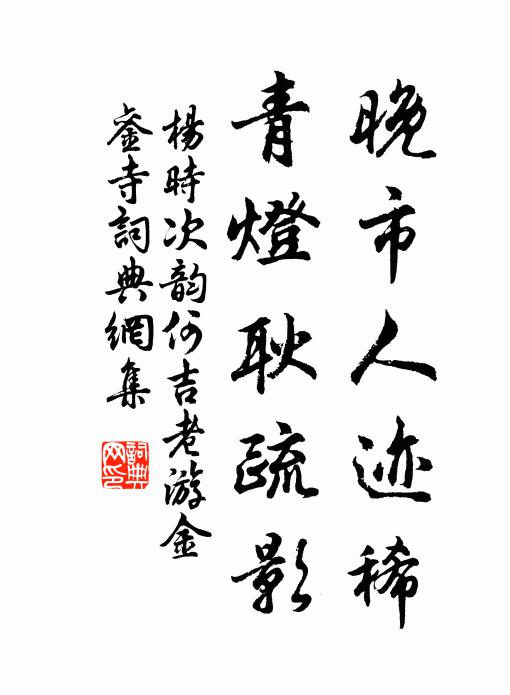 晚市人迹稀
青燈耿疏影
楊時次韵何吉老游金
銮寺詞典網集
詞典
网印